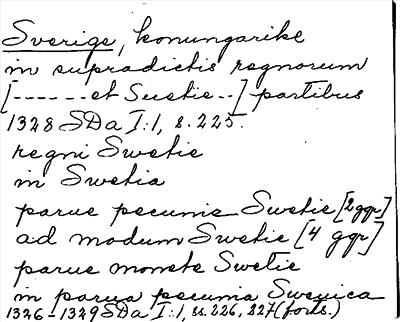 Sverige, konungarike
in supradictis regnorum
[------et Suetie--] partibus
1328 SDa I:1, s. 225.
regni Swetie
in Swetia
parue pecunie Swetie [2 ggr]
ad modum Swetie [4 ggr]
parue monete Swetie
in parua pecunia Sweuica
1326-1329 SDa I:1, ss. 226, 227 (forts.)